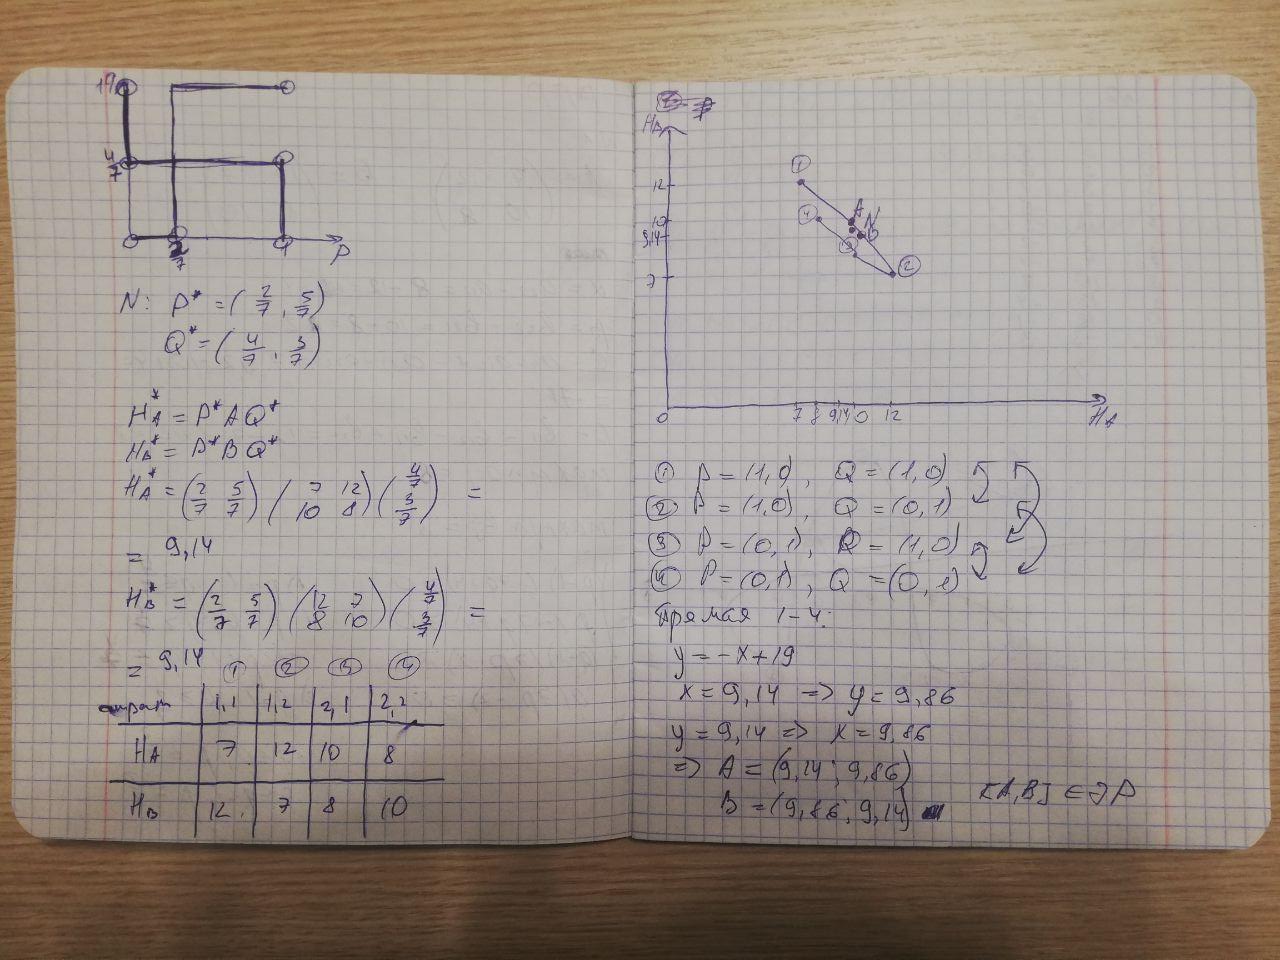 19
4/7
2/7
1
P
N: P* = (2/7, 5/7)
Q* = (4/7, 3/7)
H_A* = P* A Q*
H_B* = P* B Q*
H_A* = (2/7 5/7) (7 12 10 8) (4/7 3/7) =
= 9,14
H_B* = (2/7 5/7) (12 7 8 10) (4/7 3/7) =
= 9,14
① ② ③ ④
страт 1,1 1,2 2,1 2,2
H_A 7 12 10 8
H_B 12 7 8 10
H_A
12
10
9,14
7
① A N B ④ ③ ②
0 7 8 9,14 10 12 H_A
① P = (1,0), Q = (1,0)
② P = (1,0), Q = (0,1)
③ P = (0,1), Q = (1,0)
④ P = (0,1), Q = (0,1)
Прямая 1-4:
y = -x+19
x = 9,14 => y = 9,86
y = 9,14 => x = 9,86
=> A = (9,14; 9,86)
B = (9,86; 9,14)
[A,B] ∈ ЭР